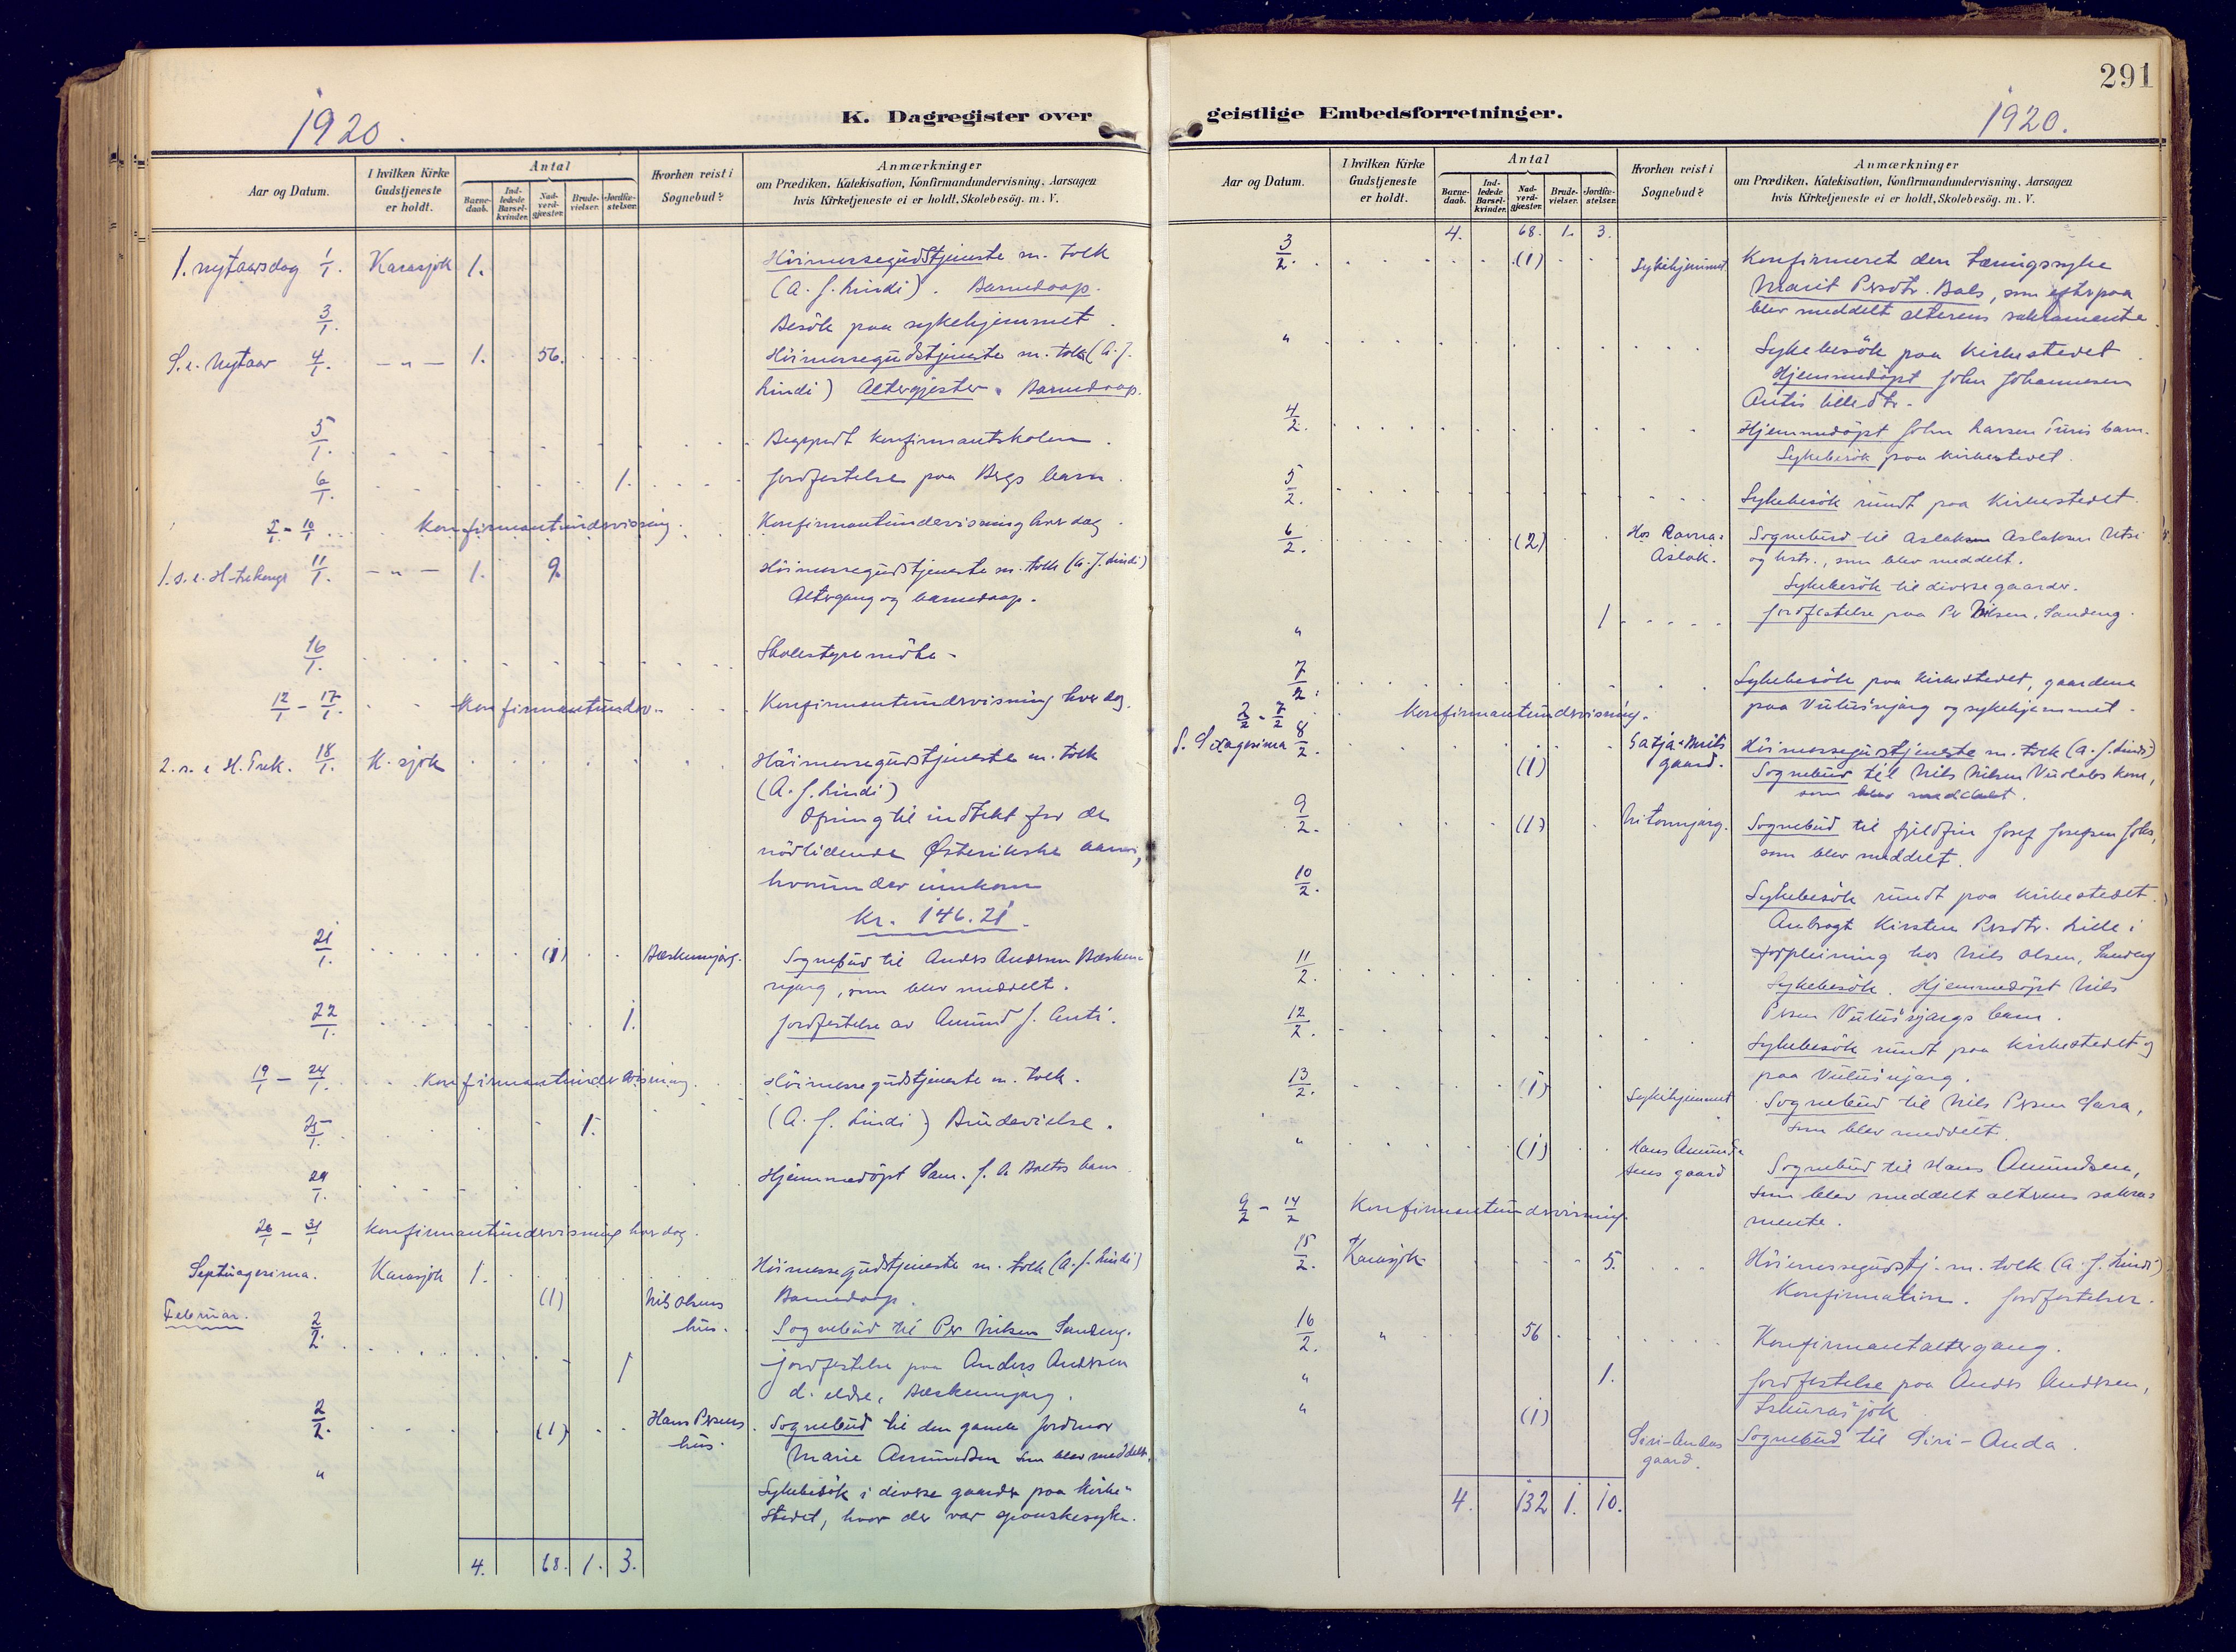 1920.
K. Dagregister over
Aar og Datum.
I hvilken Kirke Gudstjeneste er holdt.
Antal
Barne-daab.
Ind-ledede Barsel-kvinder.
Nad-verd-gjæster.
Brude-vielser.
Jordfæ-stelser.
Hvorhen reist i Sognebud?
Anmærkninger
om Prædiken, Katekisation, Konfirmandundervisning, Aarsagen
hvis Kirketjeneste ei er holdt, Skolebesög. m. V.
1. nytaarsdag 1/1. Karasjok 1. Höimessegudstjeneste m. tolk
(A. J. Lindi). Barnedaap.
3/1. Besök paa sykehjemmet.
S. e. Nytaar 4/1. — „ — 1. 56. Höimessegudstjeneste m. tolk (A. J.
Lindi) Altergjester. Barnedaap.
5/1. Begyndt konfirmantskolen.
6/1. 1. Jordfestelse paa Bergs barn.
5/1 - 10/1 Konfirmantundervisning. Konfirmantundervisning hver dag.
1. s. e. H-trekongr 11/1. — „ — 1. 9. Höimessegudstjeneste m. tolk (A. J. Lindi)
Altergang og barnedaap.
16/1. Skolestyremöte -
12/1 - 17/1. Konfirmantunderv. Konfirmantundervisning hver dag.
2. s. e H. Trek. 18/1. K. sjok Höimessegudstjeneste m. tolk
(A. J. Lindi)
Ofring til indtekt for de
nödlidende Østerikske barn,
hvorunder innkom
Kr. 146.21.
21/1. (1) Bæskennjarg. Sognebud til Anders Andersen Bæsken-
njarg, som blev meddelt.
22/1. 1. Jordfestelse av Amund J. Anti.
19/1 - 24/1. Konfirmantundervisning. Höimessegudstjeneste m. tolk.
25/1. 1. (A. J. Lindi) Brudevielse.
29/1. Hjemmedöpt Sam. J. A Baltos barn.
26/1 - 31/1 Konfirmantundervisning hver dag.
Septuagesima. Karasjok 1. Höimessegudstjeneste m. tolk (A. J. Lindi)
Barnedaap.
Februar. 2/2. (1) Nils Olsens hus. Sognebud til Per Nilsen Sandeng.
1 Jordfestelse paa Anders Andersen
d. eldre, Bæskennjarg.
2/2. (1) Hans Persens hus. Sognebud til den gamle jordmor
Marie Amundsen som blev meddelt.
„ Sykebesök i diverse gaarder paa kirke-
stedet, hvor der var spanskesyke.
4. 68. 1. 3.
291
geistlige Embedsforretninger.
1920.
Aar og Datum.
I hvilken Kirke Gudstjeneste er holdt.
Antal
Barne-daab.
Ind-ledede Barsel-kvinder.
Nad-verd-gjæster.
Brude-vielser.
Jordfæ-stelser.
Hvorhen reist i Sognebud?
Anmærkninger
om Prædiken, Katekisation, Konfirmandundervisning, Aarsagen
hvis Kirketjeneste ei er holdt, Skolebesög. m. V.
4. 68. 1. 3.
3/2. (1) Sykehjemmet. Konfirmeret den tæringssyke
Marit Persdtr. Bals, som efterpaa
blev meddelt alterens sakramente.
„ Sykebesök paa kirkestedet.
Hjemmedöpt John Johannesen
Antis lille dtr.
4/2. Hjemmedöpt John Larsen Turis barn.
Sykebesök paa kirkestedet.
5/2. Sykebesök rundt paa Kirkestedet.
6/2. (2) Hos Ravna-Aslak. Sognebud til Aslaksen Utsi
og hstr., som blev meddelt.
Sykebesök til diverse gaarder.
„ 1 Jordfestelse paa Per Nilsen, Sandeng.
7/2. Sykebesök paa kirkestedet, gaardene
paa Vuolusnjarg og sykehjemmet.
2/2 - 7/2 Konfirmantundervisning.
S. Sexagesima 8/2. (1) gaard. Höimessegudstjeneste m. tolk (A. J. Lindi)
Sognebud til Nils Nilsen kone,
som blev meddelt.
9/2. (1) Sognebud til fjeldfin Josef Josefsen
som blev meddelt.
10/2. Sykebesök rundt paa kirkestedet.
Anbragt Kirsten Persdtr. Lille i
forpleining hos Nils Olsen, Sandeng
11/2. Sykebesök. Hjemmedöpt Nils
Persen barn.
12/2. Sykebesök rundt paa kirkestedet og
paa
13/2. (1) Sykehjemmet. Sognebud til Nils Persen Sara,
som blev meddelt.
„ (1) Hans Amund-sens gaard Sognebud til Hans Amundsen,
som blev meddelt alterens sakra-
mente.
9/2 - 14/2 Konfirmantundervisning.
15/2. Karasjok 5. Höimessegudstj. m. tolk (A. J. Lindi)
Konfirmation. Jordfestelser.
16/2. „ 56 Konfirmantaltergang.
„ 1. Jordfestelse paa Anders Andersen,
Iskurasjok
„ (1) Siri-Andas gaard. Sognebud til Siri-Anda.
4. 132 1. 10.